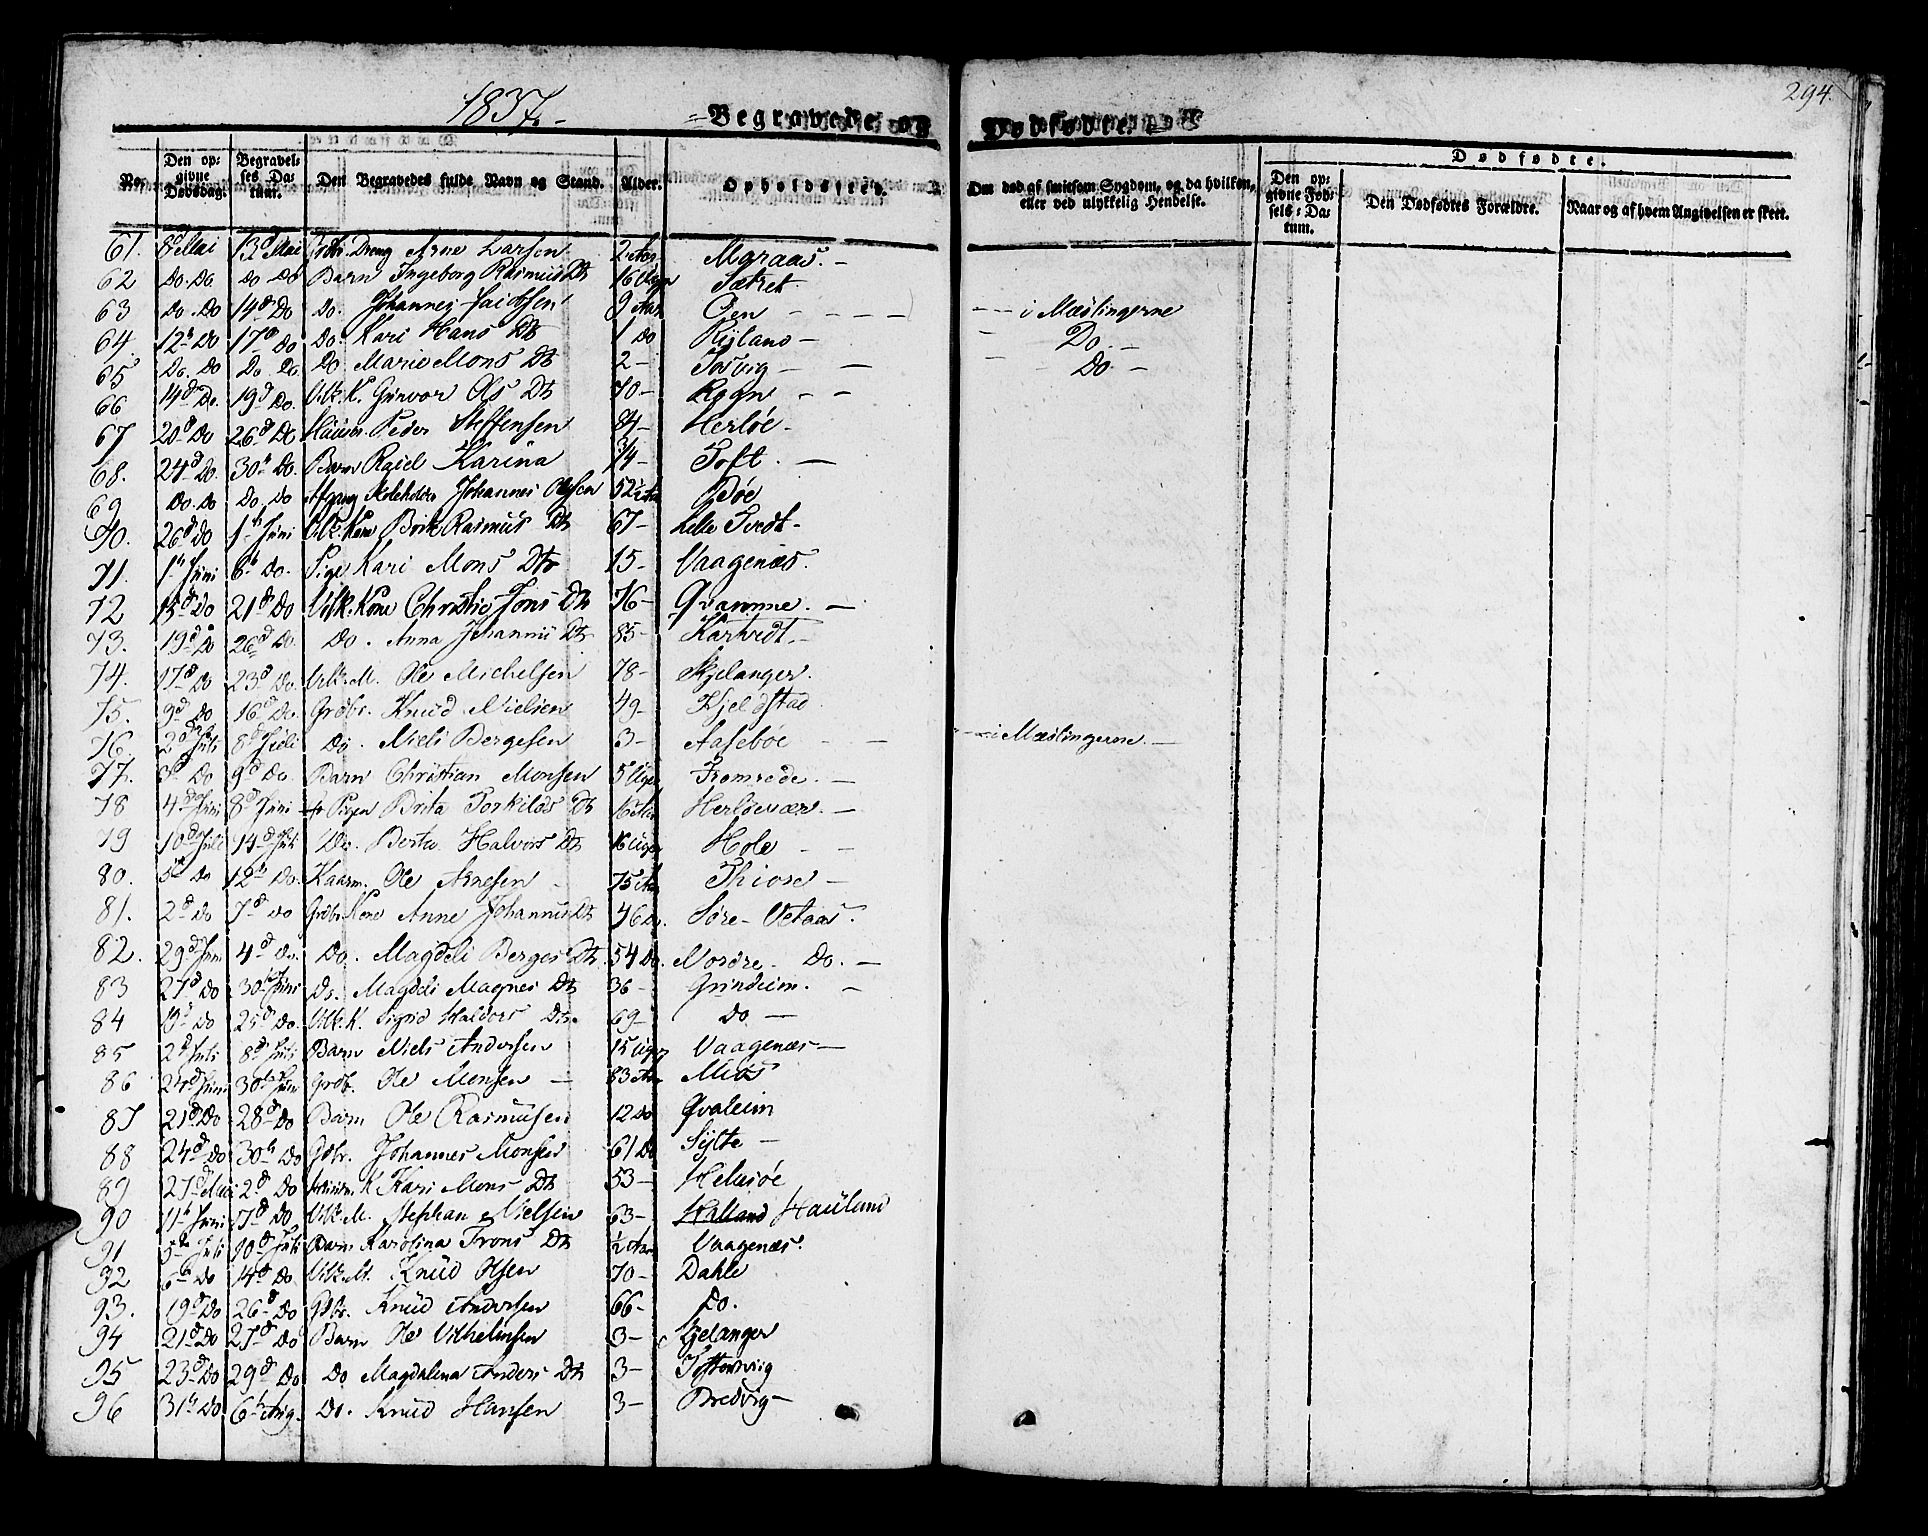 1837.
Begravede og Dødfødte.
294.
No.
Den opgivne Dødsdag.
Begravelses Datum.
Den Begravedes fulde Navn og Stand.
Alder.
Opholdssted.
Om død af smitsom Sygdom, og da hvilken, eller ved ulykkelig Hendelse.
Dødfødte.
Den opgivne Fødsels-Datum.
Den Dødfødtes Forældre.
Naar og af hvem Angivelsen er skeet.
61. 8d Mai 13d Mai Dreng Arne Larsen 2 Aar
62 Do. Do Do Do Barn Ingeborg Rasmus Dtr 16 Uger Sætret
63 Do. Do 14d Do Do. Johannes 9 Aar Øen - i Mæslingerne
64. 12t Do 17d Do Do Kari Hans Dtr 1 Do Ryland - Do. -
65 Do. Do Do. Do. Do Marie Mons Dtr 2 - Tosvig - Do. -
66 14d Do. 19d Do. Vilk. K. Gunvor Ols Dtr 70 - Rogn - -
67 20d Do 26d Do Peder Steffensen 84 - Herløe -
68. 24d Do. 30t Do. Barn Karina 3/4 - Toft. -
69 Do. Do Do. Do Johannes Olesen 52½ Aar Bøe
70. 26d Do 1t Juni Vilk. Kone Brite Rasmus Dtr 67 - Lille Tvedt -
71. 1t Juni 6t Do. Pige Kari Mons Dtr 15 - Vaagenæs.
72 15d Do 21d Do Vilk. Kone Christie Jons Dtr 76 - Qvamme. -
73. 19d Do 26d Do. Do. Anna Johannis Dtr 85 - Kartvedt. -
74. 17d Do 23d Do. Vilk. M. Ole Michelsen 78 - Skjelanger.
75. 9d Do 16d Do. Grdbr. Knud Nielsen 49 - Kjeldstad
76. 2d Juli 8d Juli Do. Niels Bergesen 3 - Aasebøe - i Mæslingerne -
77. 3d Do 9d Do. Barn Christian Monsen 5 Uger Fromrede. -
78 4d Juni 8d Juni Pigen Brita Torkilds Dtr 16 Aar Herløevær. -
79 10d Juli 14d Juli Do. Berta Halvors Dtr 16 Uger Hole -
80. 5te Do 12t Do. Kaarm. Ole Arnesen 75 Aar Thiore -
81. 2d Do 7d Do Grdbr. Kone Anne Johannis Dtr 46 Do. Søre - Vetaas.
82. 29d Juni 4d Do. Do. Magdeli Berges Dtr. 54 Do. Nordre - Do. -
83 27d Do 30t Juni Do. Magdeli Magnes Dtr 36 - Grindeim. -
84 19d Do 25d Do. Vilk. K. Sigrid Haldors Dtr. 69 - Do -
85 2d Juli 8d Juli Barn Niels Andersen 15 Uger Vaagenæs -
86 24d Juni 30te Juni Grdb. Ole Monsen - 83 Aar Mias
87 21d Do 28d Do Barn Ole Rasmussen 12 Do Qvaleim
88 24d Do 30t Do Gdbr. Johannes Monsen 61 Do Sylte -
89 27d Mai 2d Do K Kari Mons Dtr 53 - Helesøe
90 11t Juni 17d Do Vilk. M. Stephan Nielsen 63 - Halland Hauland
91 5te Juli 10d Juli Barn Karolina Trons Dtr ½ Aar Vaagenæs.
92 6t Do 14d Do. Vilk. M. Knud Olsen 70 - Dahle
93. 19d Do 26d Do Gdbr. Knud Andersen 66 - Do.
94 21d Do 27d Do Barn Ole Vilhelmsen 3 - Skjelanger
95 23d Do 29d Do Do Magdalena Anders Dtr 3 -
96 31t Do 6t Aug. Do. Knud Hansen 3 - Bredvig -